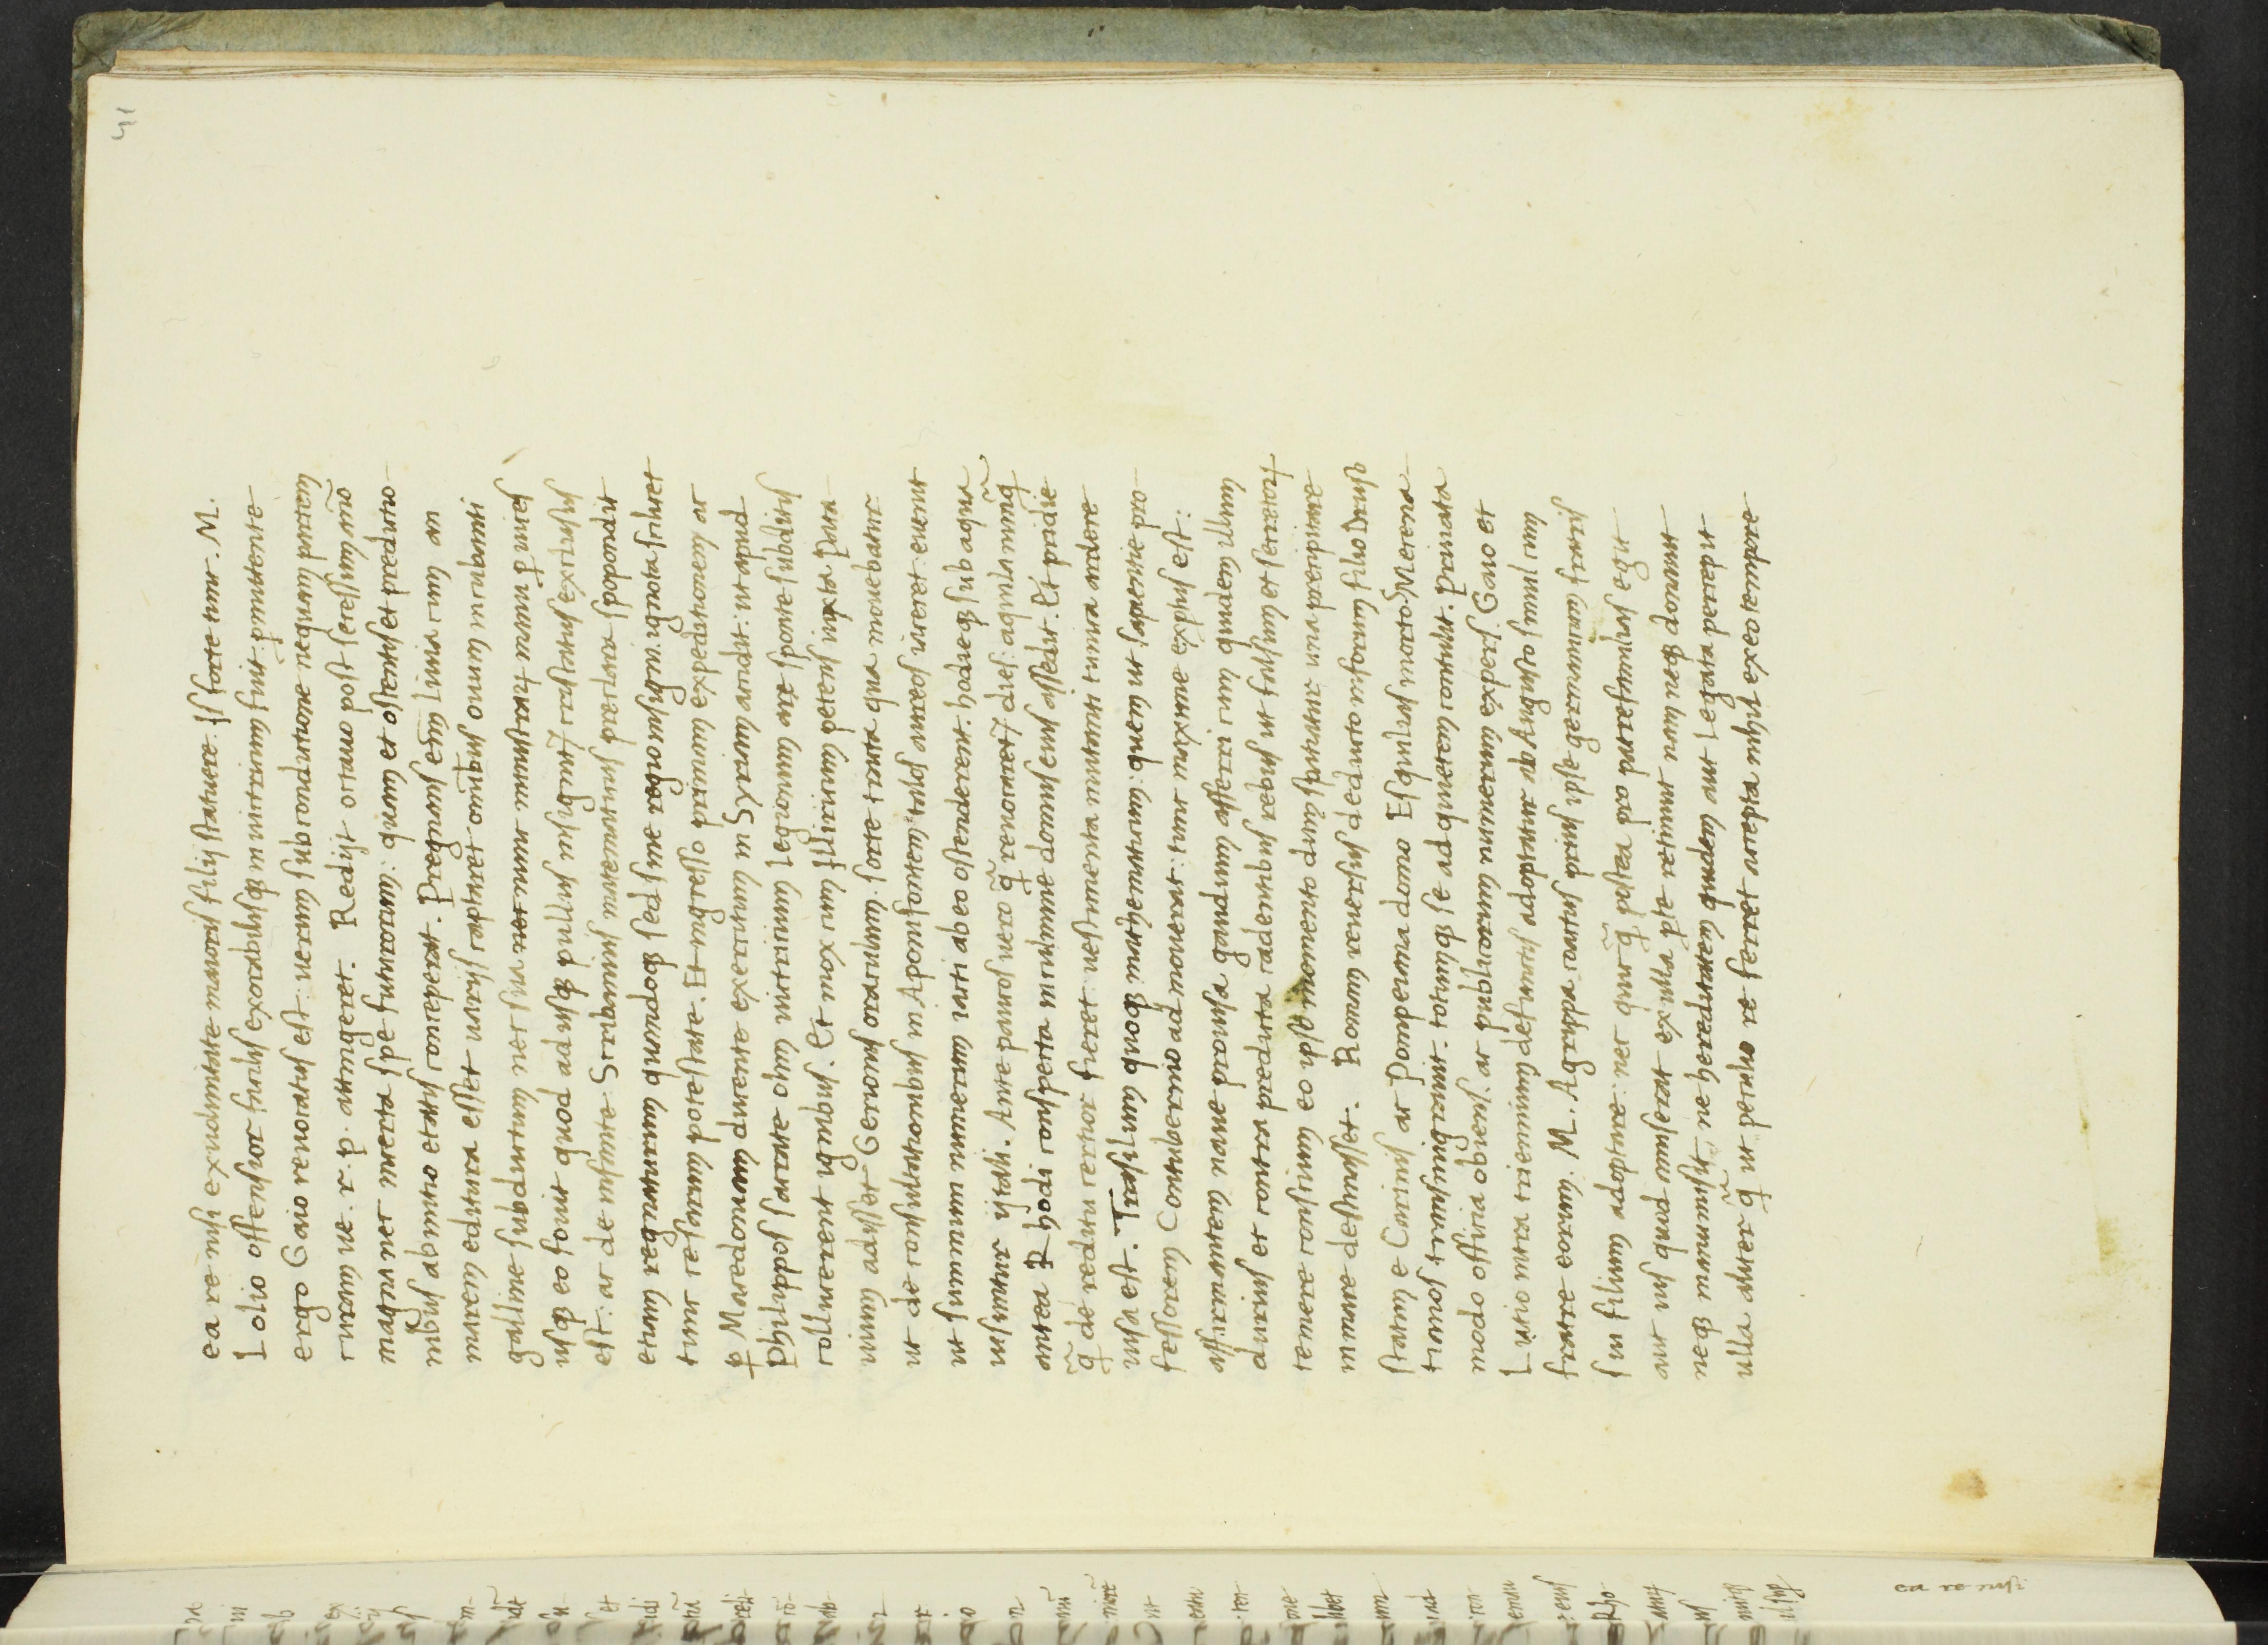 41
ea re nisi ex uoluntate maioris filij statuere. Is forte tunc. M.
Lolio offensior facilis exorabilisq3 in uitricum fuit. pmittente
ergo Gaio reuocatus est: uerum sub conditione nequam partem
curam ue. r. p. attingeret. Redijt octauo post secessum año
magna nec incerta spe futurorum: quam et ostentis et predictio
nibus ab initio etatis conceperat. Pregnans em̃ Liuia cum an
marem editura esset uarijs captaret omĩbus ouum incubanti
galline subductum nec sua nec nunc ministrar̃ manu p uices
usq3 eo fouit quod adusq3 pullus insignit᷑ cristatus exclusus
est. ac de infante Scribonius matematicus preclara spopondit
etiam regnaturum quandoq3 sed sine regio insigni. ignota scilicet
tunc cesarum potestate. Et ingresso primam expeditionem ac
p Macedoniam ducente exercitum in Syriam accidit. ut apud
Philippos sacrate olim uictricium legionum are sponte subditis
collucerent ignibus. Et mox cum Illiricum petens iuxta Pata
uium adisset Gerionis oraculum. sorte tracta qua mouebatur
ut de consultationibus in Aponi fontem talos aureos iaceret. euenit
ut summum numerum iacti ab eo ostenderent. hodieq3 sub aqua
uisuntur ij tali. Ante paucos uero q̃ reuocaret᷑ dies. aquila nunq̃
antea Rhodi conspecta in culmine domus eius assedit. Et pridie
q̃ de reditu certior fieret. uestimenta mutanti tunica ardere
uisa est. Trasilum quoq3 mathematicum: quem ut sapientie pro
fessorem Contubernio admouerat: tunc maxime exptus est:
affirmantem naue prouisa gaudium afferri cum quidem illum
durius et contra predicta cadentibus rebus ut falsum et secretor̃
temere conscium eo ipso momento dum spatiatur una precipitare
in mare destinasset. Romam reuersus deducto in forum filio Druso
statim e Carinis ac Pompeiana domo Esquilias in ortos Mecena
tianos transmigrauit. totumq3 se ad quietem contulit. priuata
modo officia obiens. ac publicorum numerum expers. Gaio et
Lutio intra triennium defunctis adoptatur ab Augusto simul cum
fratre eorum. M. Agrippa coactus prius ipse germanicum fratris
sui filium adoptare: nec quicq̃ postea pro patrefamilias egit
aut ius quod amiserat ex ulla pte retinuit nam neq3 donauit
neq3 manumisit. ne hereditatem quidem aut legata percepit
ulla aliter q̃ ut peculio re ferret accepta nihil ex eo tempore
ea re nisi